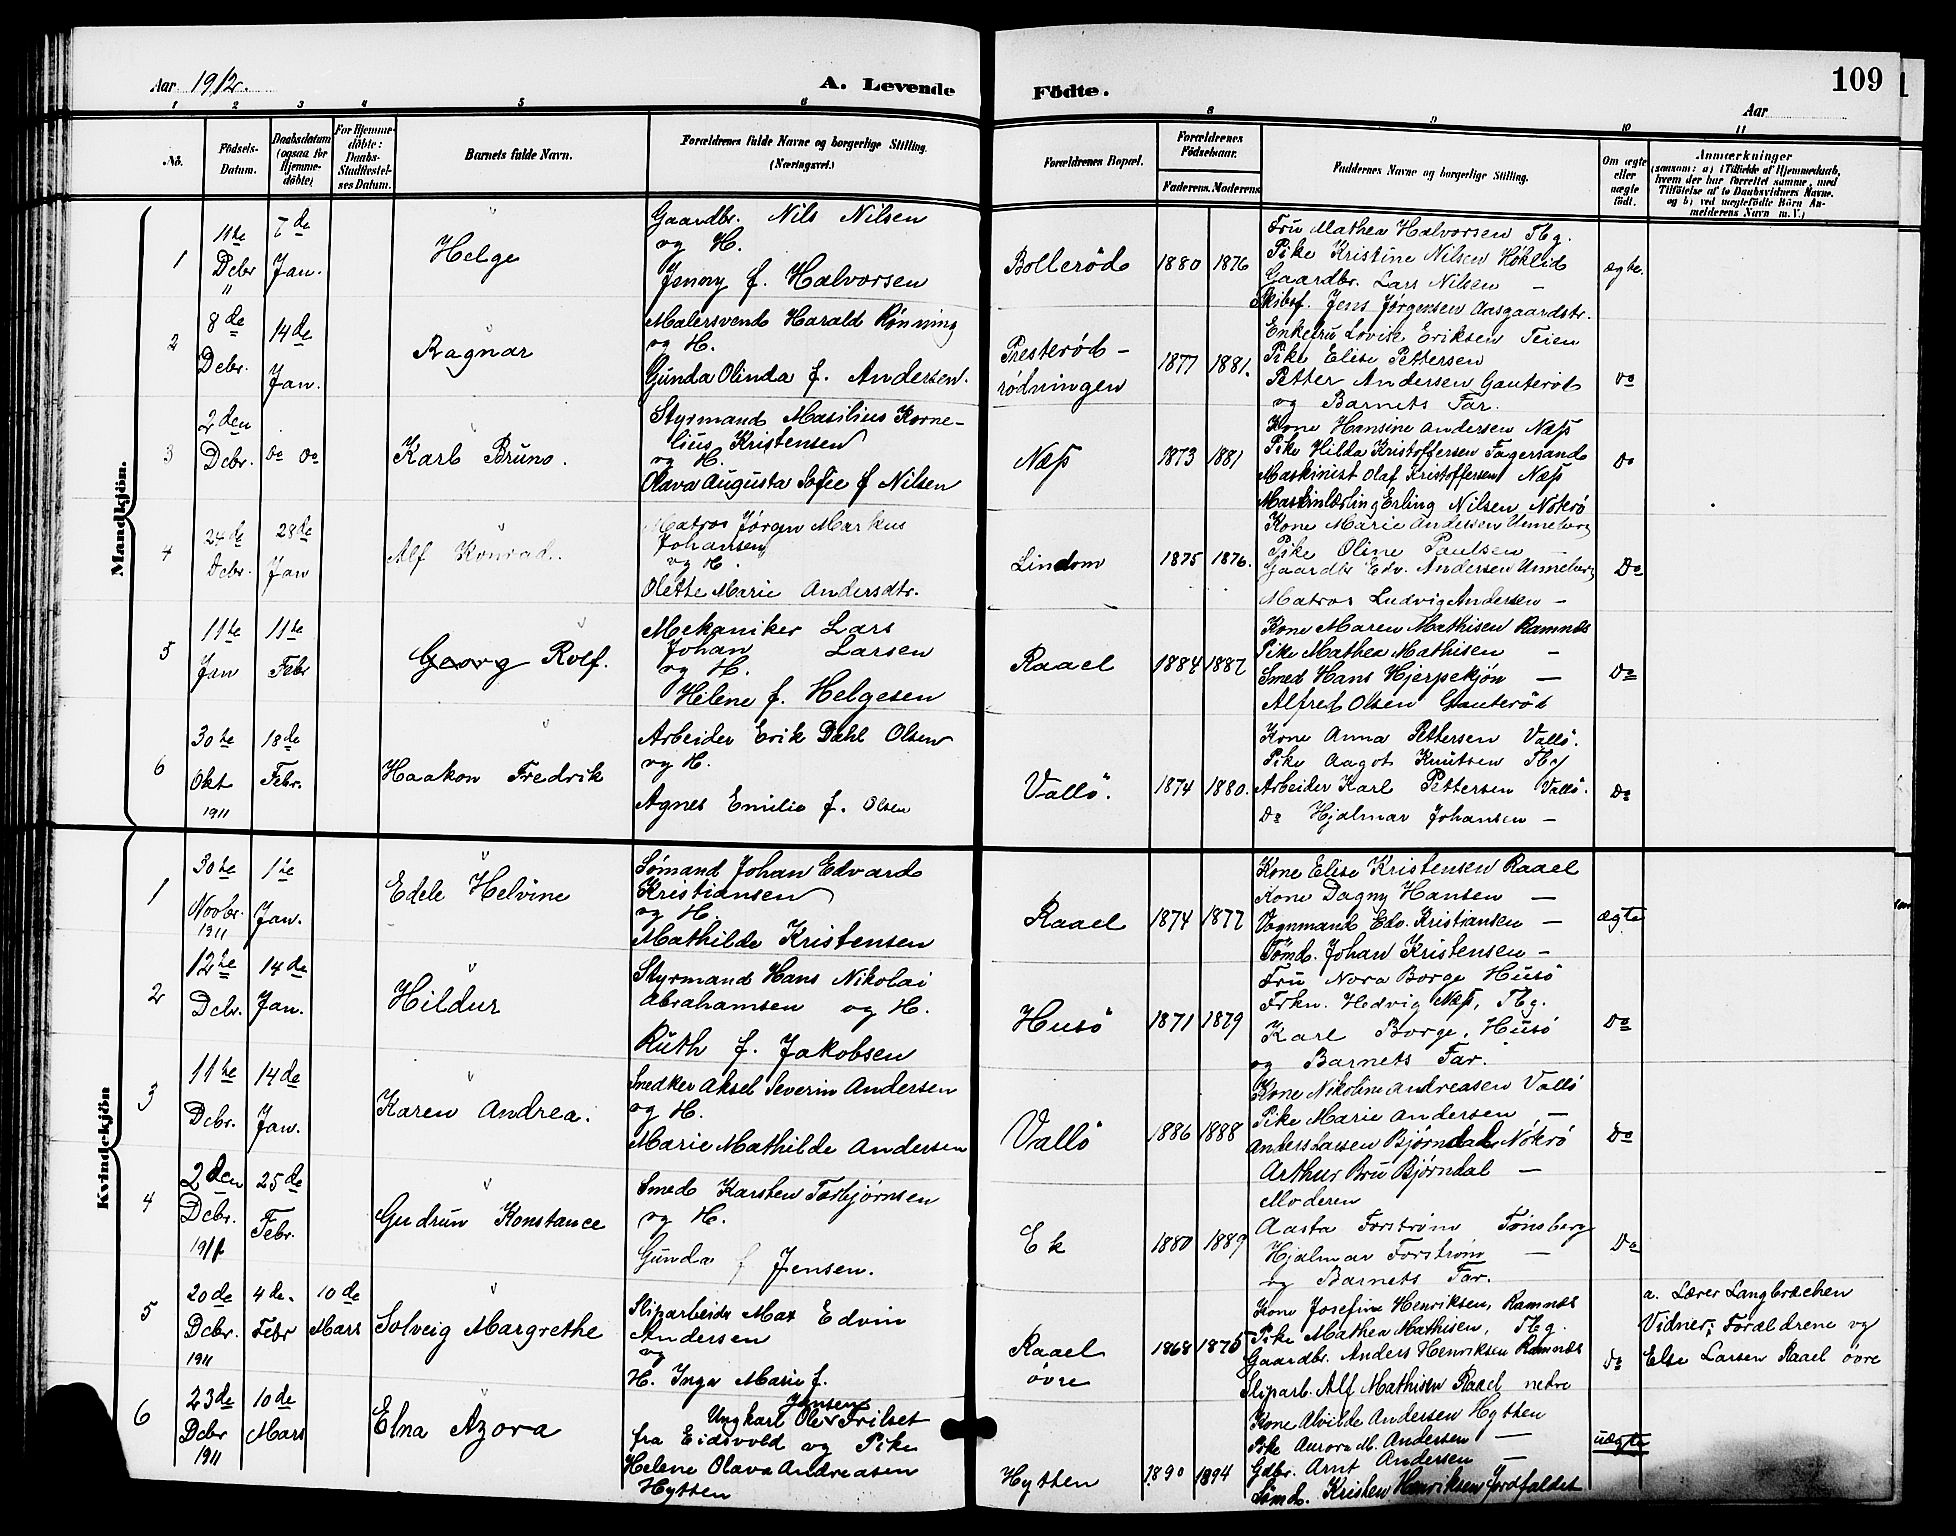 Aar 1912.
A. Levende Födte.
109
Aar
1 2 3 4 5 6 8 9 10 11
No.
Födsels-Datum.
Daabsdatum (ogsaa for Hjemme-döbte)
For Hjemme-döbte: Daabs-Stadfæstel-ses Datum.
Barnets fulde Navn.
Forældrenes fulde Navne og borgerlige Stilling. (Næringsvei.)
Forældrenes Bopæl.
Forældrenes Födselsaar.
Faderens. Moderens.
Faddernes Navne og borgerlige Stilling.
Om ægte eller uægte födt.
Anmærkninger
(saasom: a) i Tilfælde af Hjemmedaab, hvem der har forrettet samme, med Tilföielse af to Daabsvidners Navne. og b) ved uægtefödte Börn Anmelderens Navn m. V.)
Mandkjön.
1
11te Dcbr "
7de Jan.
Helge
Gaardbr. Nils Nilsen
og H.
Jenny f. Halvorsen
Bollerød
1880 1876
Fru Mathea Halvorsen Tbg.
Pike Kristine Nilsen Høklid
Gaardbr. Lars Nilsen —
Skibsf. Jens Jørgensen Aasgaardstr.
ægte.
2
8de Dcbr.
14de Jan.
Ragnar
Malersvend Harald Rønning
og H.
Gunda Olinda f. Andersen.
Presterød-
rødningen
1877 1881.
Enkefru Lovise Eriksen Teien
Pike Elise Pettersen
Petter Andersen Gauterød
og Barnets Far.
Do
3
2den Dcbr.
Do Do
Karl Bruno.
Styrmand Masilius Korne-
lius Kristensen
og H.
Olava Augusta Sofie f Nilsen
Næss
1873 1881
Kone Hansine Andersen Næss
Pike Hilda Kristoffersen Fagersand
Maskinist Olaf Kristoffersen Næss
Maskinlærling Erling Nilsen Nøkrø
Do
4
24de Dcbr.
28de Jan
Alf Konrad.
Matros Jørgen Markus
Johansen
og H.
Olette Marie Andersdtr.
Lindom
1875 1876.
Kone Marie Andersen Unneberg
Pike Oline Paulsen —
Gaardbr Edv. Andersen Unneberg
Matros Ludvig Andersen —
Do
5
11te Jan
11te Febr
Georg Rolf.
Mekaniker Lars
Johan Larsen
og H.
Helene f. Helgesen
Raael
1884 1887
Kone Maren Mathisen Ramnes
Pike Mathea Mathisen —
Smed Hans Hjerpekjøn —
Alfred Olsen Gauterød
Do
6
30te Okt 1911
18de Febr.
Haakon Fredrik
Arbeider Erik Dahl Olsen
og H.
Agnes Emilie f. Olsen
Vallö.
1874 1880.
Kone Anna Pettersen Vallö.
Pike Aagot Knutsen Tbg
Arbeider Karl Pettersen Vallö.
Do Hjalmar Johansen —
Do
Kvindekjön
1
30te Novbr. 1911
1te Jan.
Edele Helvine
Sømand Johan Edvard
Kristiansen
og H.
Mathilde Kristensen
Raael
1874 1877
Kone Elise Kristensen Raael
Kone Dagny Hansen —
Vognmand Edv. Kristiansen —
Tømd. Johan Kristensen —
ægte
2
12te Dcbr.
14de Jan.
Hildur
Styrmand Hans Nikolai
Abrahamsen og H.
Ruth f. Jakobsen
Husö
1871 1879
Fru Nora Borge Husö
Frkn. Hedvig Næss, Tbg.
Karl Borge, Husö
og Barnets Far.
Do
3
11te Dcbr.
14de Jan.
Karen Andrea.
Snedker Aksel Severin Andersen
og H.
Marie Mathilde Andersen
Vallö
1886 1888
Kone Nikoline Andreasen Vallö
Pike Marie Andersen —
Anders Larsen Bjørndal Nøkrø
Arthur Bru Bjørndal —
Do
4
2den Dcbr. 1911
25de Febr.
Gudrun Konstance
Smed Karsten Torbjørnsen
og H.
Gunda f Jensen.
Ek
1880 1889
Moderen
Aasta Forstrøm Tønsberg
Hjalmar Forstrøm —
og Barnets Far.
Do
5
20de Dcbr. 1911
4de. Febr
10de Mars
Solveig Margrethe
Sliparbeider Max Edvin
Andersen
og
H. Inga Marie f.
Jensen
Raael
øvre
1868 1875
Kone Josefine Henriksen, Ramnes
Pike Mathea Mathisen, Tbg.
Gaardbr. Anders Henriksen Ramnes
Sliparb. Alf Mathisen Raael nedre
do
a. Lærer Langbrækken
Vidner; Forældrene og
Else Larsen Raael øvre
6
23de Dcbr 1911
10de Mars
Elna Azora
Ungkarl Ole Frilset
fra Eidsvold og Pike
Helene Olava Andreasen
Hytten
Hytten
1890 1894
Kone Alvilde Andersen Hytten
Pike Aurora M. Andersen —
Gdbr. Arnt Andersen —
Sømd. Kristen Henriksen Jordfaldet
uægte